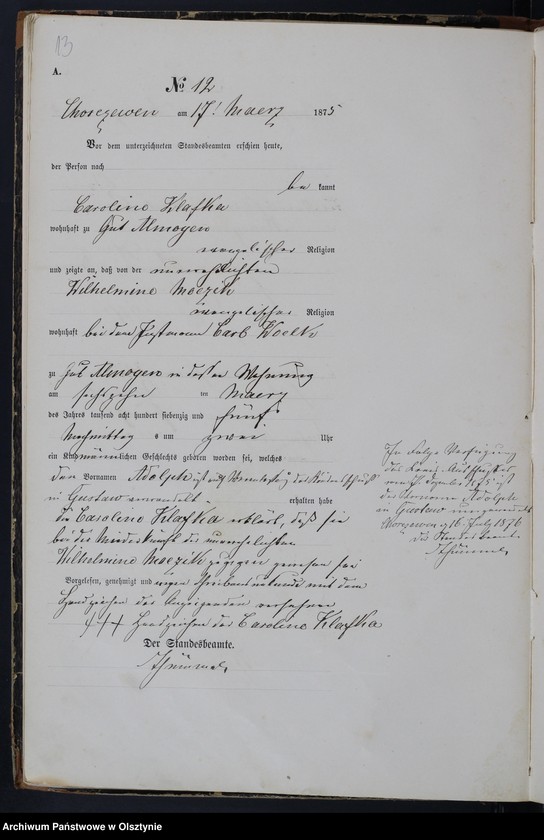 13
A.
№ 12
Chorczewen am 17. Maerz 1875
Vor dem unterzeichneten Standesbeamten erschien heute,
der Person nach
be kannt
Caroline Klafka
wohnhaft zu Gut Almoyen
evangelischer Religion
und zeigte an, daß von der unverehelichten
Wilhelmine Moczik
evangelischer Religion
wohnhaft bei dem Instmann Carl Woelk
zu Gut Almoyen in dessen Wohnung
am sechszehn ten Maerz
des Jahres tausend acht hundert siebenzig und fünf
Nachmittag s um zwei Uhr
ein Kind männlichen Geschlechts geboren worden sei, welches
den Vornamen Adolph ist auf
in Gustaw umgewandelt. erhalten habe
Die Caroline Klafka erklärt, daß sie
bei der Niederkunft der unverehelichten
Wilhelmine Moczik zugegen gewesen sei
Vorgelesen, genehmigt und wegen Schreibensunkunde mit dem
Handzeichen der Anzeigenden versehen
+++ Handzeichen der Caroline Klafka
Der Standesbeamte.
In Folge Verfügung
des
vom 1875 ist
der Vorname Adolph
in Gustaw umgewandelt
d 16 July 1876
Der Standesbeamte
Archiwum Państwowe w Olsztynie